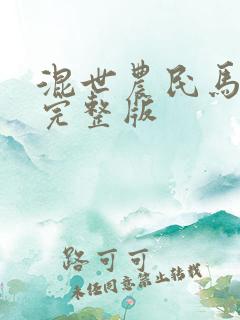 混世農民馬
完整版
路可可
未经同意禁止转载